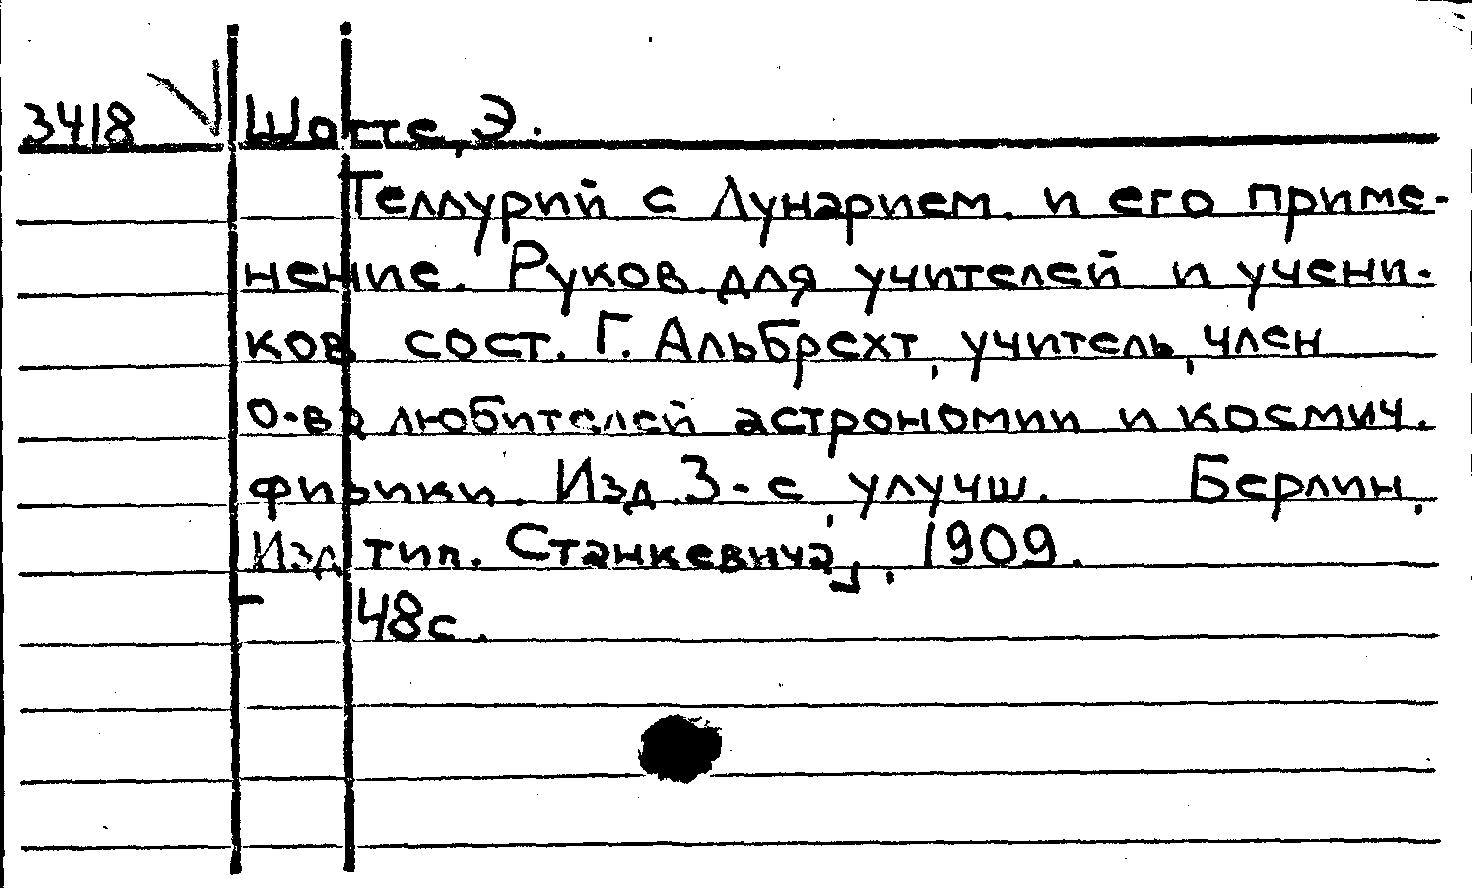 3418 Шотте, Э.
Теллурий с Лунарием. и его приме-
нение. Руков. для учителей и учени-
ков сост. Г. Альбрехт, учитель, член
о-ва любителей астрономии и космич.
физики. Изд. 3-е, улучш. Берлин,
Изд тип. Станкевича, 1909.
48с.